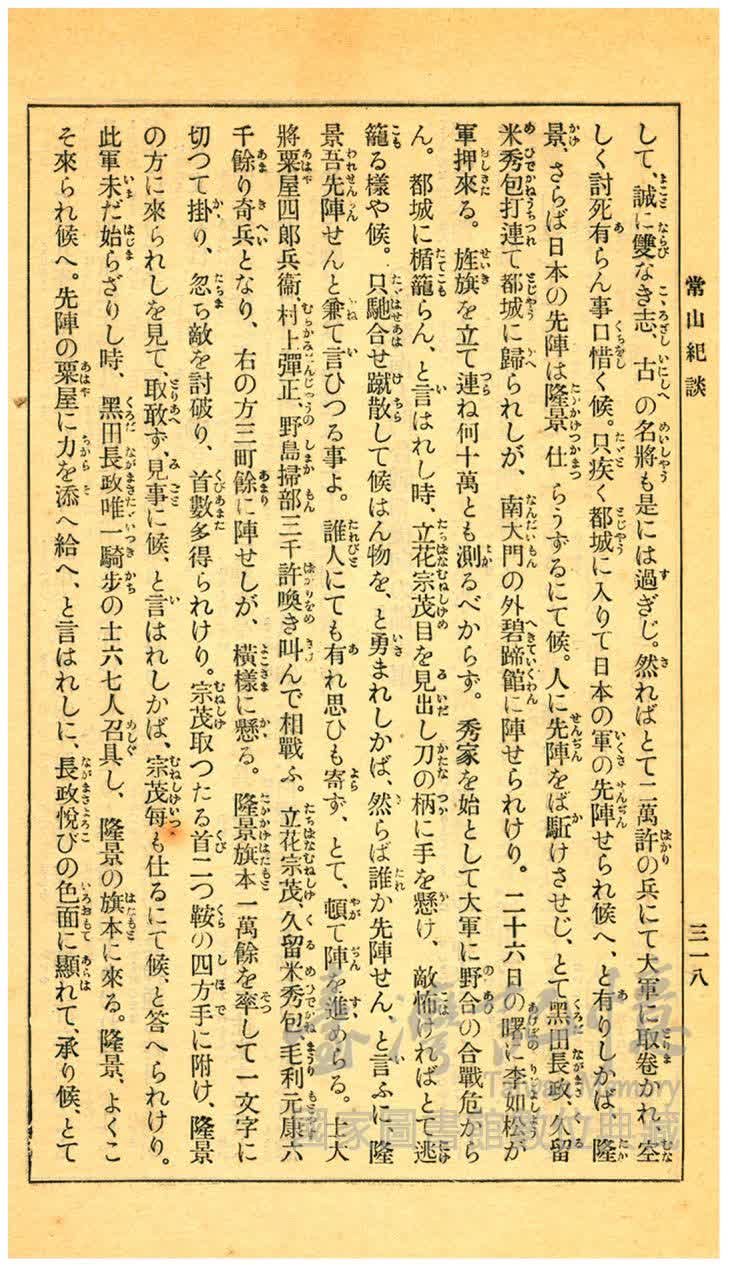 常山紀談
三一八
して、誠に雙なき志、古の名將も是には過ぎじ。然ればとて二萬許の兵にて大軍に取卷かれ、空
しく討死有らん事口惜く候。只疾く都城に入りて日本の軍の先陣せられ候へ、と有りしかば、隆
景、さらば日本の先陣は隆景仕らうずるにて候。人に先陣をば駈けさせじ、とて黑田長政、久留
米秀包打連て都城に歸られしが、南大門の外碧蹄館に陣せられけり。二十六日の曙に李如松が
軍押來る。旌旗を立て連ね何十萬とも測るべからず。秀家を始として大軍に野合の合戰危から
ん。都城に楯籠らん、と言はれし時、立花宗茂目を見出し刀の柄に手を懸け、敵怖ければとて逃
籠る樣や候。只馳合せ蹴散して候はん物を、と勇まれしかば、然らば誰か先陣せん、と言ふに、隆
景吾先陣せんと兼て言ひつる事よ。誰人にても有れ思ひも寄ず、とて、頓て陣を進めらる。士大
將粟屋四郎兵衞、村上彈正、野島掃部三千許喚き叫んで相戰ふ。立花宗茂、久留米秀包、毛利元康六
千餘り奇兵となり、右の方三町餘に陣せしが、橫樣に懸る。隆景旗本一萬餘を率して一文字に
切つて掛り、忽ち敵を討破り、首數多得られけり。宗茂取つたる首二つ鞍の四方手に附け、隆景
の方に來られしを見て、取敢ず、見事に候、と言はれしかば、宗茂每も仕るにて候、と答へられけり。
此軍未だ始らざりし時、黑田長政唯一騎步の士六七人召具し、隆景の旗本に來る。隆景、よくこ
そ來られ候へ。先陣の粟屋に力を添へ給へ、と言はれしに、長政悅びの色面に顯れて、承り候、とて
臺灣記憶
Taiwan Memory
國家圖書館數位典藏